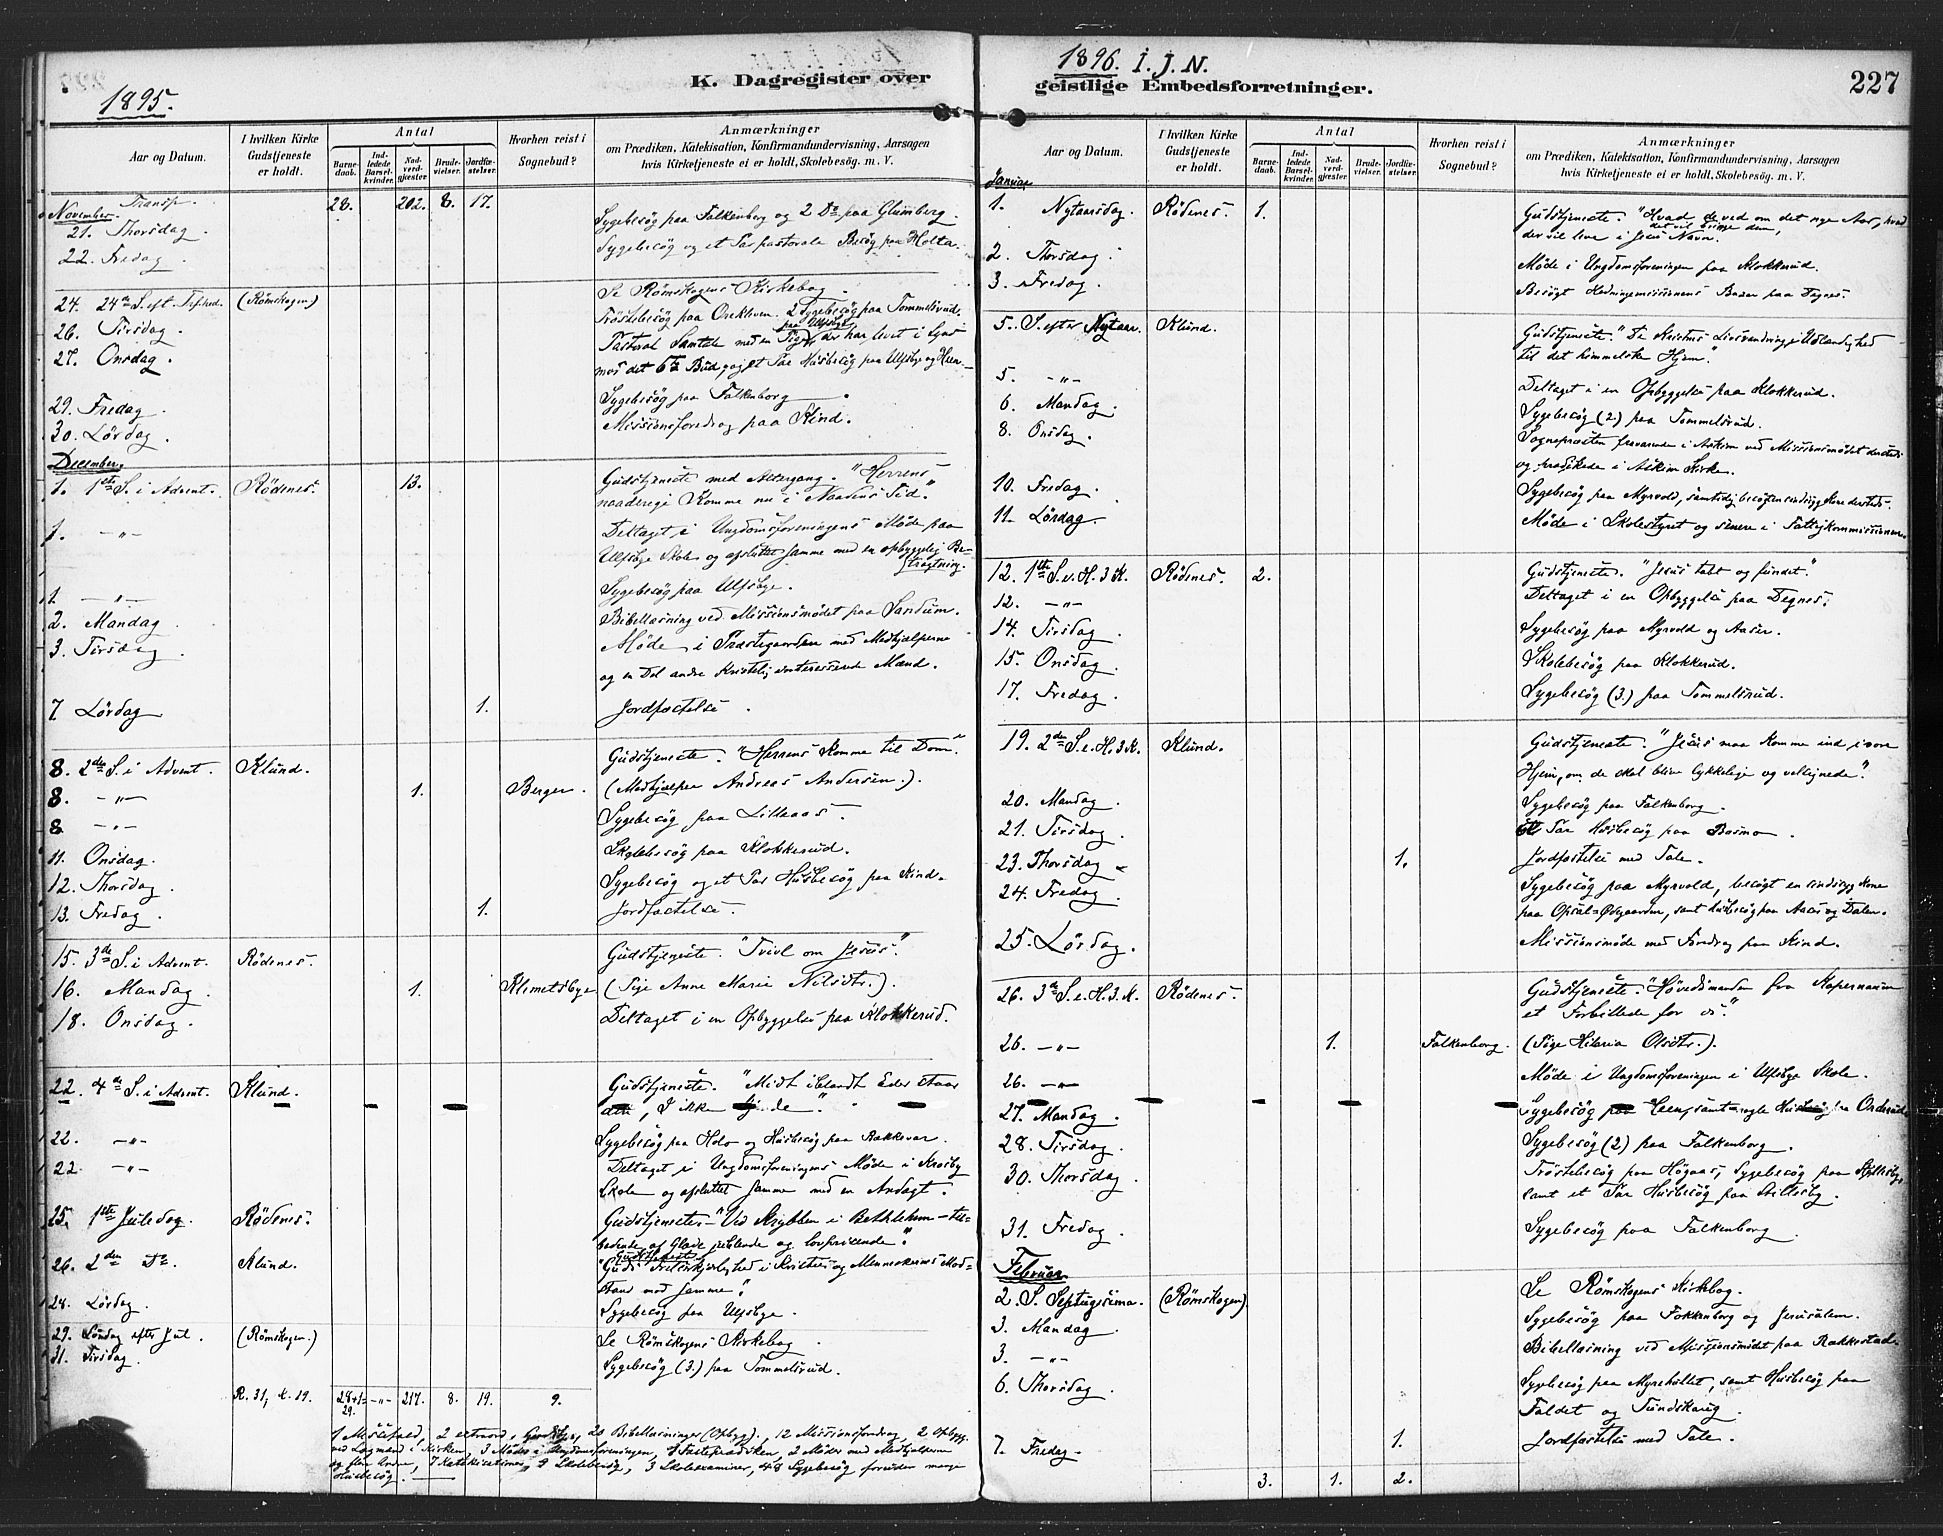 1895.
K. Dagregister over
Aar og Datum.
I hvilken Kirke Gudstjeneste er holdt.
Antal
Barnedaab.
Indledede Barselkvinder.
Nadverdgjester
Brudevielser.
Jordfæstelser.
Hvorhen reist i Sognebud?
Anmærkninger
om Prædiken, Katekisation, Konfirmandundervisning, Aarsagen
hvis Kirketjeneste ei er holdt, Skolebesög. m. V.
Transp. 28. 202. 8. 17.
November.
21. Thorsdag. Sygebesög paa Falkenborg og 2 Do paa Glumberg.
22. Fredag. Sygebesög og et Par pastorale Besög paa Holta.
24. 24de S. eft. Tref. (Römskogen) Se Römskogens Kirkebog.
26. Tirsdag. Tröstebesög paa Orekleven. 2 Sygebesög paa Tommelsrud.
27. Onsdag. Pastoral Samtale med en Pige paa Ulfsbye, der har levet i Synd
mod det 6te Bud, og et Par Husbesög paa Ulfsbye og
29. Fredag. Sygebesög paa Falkenborg.
30. Lördag. Missionsforedrag paa Kind.
December.
1. 1ste S. i Advent. Rödenes. 13. Gudstjeneste med Altergang. "Herrens
naaderige Komme nu i Naadens Tid."
1. -"- Deltaget i Ungdomsforeningens Möde paa
Ulfsbye Skole og afsluttet samme med en opbyggelig Be-
tragtning.
1. -"- Sygebesög paa Ulfsbye.
2. Mandag. Bibellæsning ved Missionsmödet paa Sandum.
3. Tirsdag. Möde i Præstegaarden med Medhjælperne
og en Del andre Kristelig interesserede Mænd.
7 Lördag 1. Jordfæstelse.
8. 2den S. i Advent. Klund. Gudstjeneste. "Herrens Komme til Dom."
8. -"- 1. Berger. (Medhjælper Andreas Andersen.).
8 -"- Sygebesög paa Lillaas.
11. Onsdag. Skolebesög paa Klokkerud.
12. Thorsdag. Sygebesög og et Par Husbesög paa Kind.
13. Fredag. 1. Jordfæstelse.
15. 3de S. i Advent. Rödenes. Gudstjeneste. "Tvivl om Jesus."
16. Mandag. 1. Klemetsbye (Pige Anne Marie Nilsdtr.).
18. Onsdag. Deltaget i en Opbyggelse paa Klokkerud.
22. 4de S. i Advent. Klund. Gudstjeneste. "Midt iblandt Eder staar
den, I ikke kjende."
22. -"- Sygebesög paa Holo og Husbesög paa Rakkevar.
22. -"- Deltaget i Ungdomsforeningens Möde i Krosby
Skole og afsluttet samme med en Andagt.
25. 1ste Juledag. Rödenes. Gudstjeneste. "Ved Krybben i Bethlehem - til-
bedende af Glæde jublende og lovprisende."
26. 2den Do. Klund. Gudstjeneste
"Guds Frelserkjærlighed i Kristus og Menneskernes Mod-
stand mod samme."
28. Lördag. Sygebesög paa Ulfsbye.
29. Söndag efter Jul. (Römskogen.) Se Römskogens Kirkebog.
31. Tirsdag. Sygebesög (3.) paa Tommelsrud.
R. 31, K. 19. 28+1= 29. -"- 217. 8. 19. 9.
1 Missionsfood, 2 extraord. Gudstj., 20 Bibellæsninger (Opbyg)., 12 Missionsforedrag, 2 Opbygg.
ved Lægmænd i Kirken, 3 Möder i Ungdomsforeningen, 2 Möder med Medhjælperne
og flere Andre, 7 Katekisationer, 9 Skolebesög, 3 Skoleexaminer, 48 Sygebesög foruden mange
Husbesög.
1896. I. J. N.
geistlige Embedsforretninger.
227
Aar og Datum.
I hvilken Kirke Gudstjeneste er holdt.
Antal
Barnedaab.
Indledede Barselkvinder.
Nadverdgjester
Brudevielser.
Jordfæstelser.
Hvorhen reist i Sognebud?
Anmærkninger
om Prædiken, Katekisation, Konfirmandundervisning, Aarsagen
hvis Kirketjeneste ei er holdt, Skolebesög. m. V.
Januar
1. Nytaarsdag. Rödenes. 1. Gudstjeneste. "Hvad de ved om det nye Aar, hvad
det vil bringe dem,
der vil leve i Jesu Navn.
2. Thorsdag. Möde i Ungdomsforeningen paa Klokkerud.
3. Fredag. Besögt Hedningemissionens Bazar paa Degnes.
5. S. efter Nytaar. Klund. Gudstjeneste. "De Kristnes Livsvandring i Udlændighed
til det himmelske Hjem."
5. -"- Deltaget i en Opbyggelse paa Klokkerud.
6. Mandag. Sygebesög (2) paa Tommelsrud.
8. Onsdag. Sognepræsten fraværende i Askim ved Missionsmödet dersteds
og prædikede i Askim Kirke.
10. Fredag. Sygebesög paa Myrvold, samtidig besögt en sindssyg Kone dersteds.
11. Lördag. Möde i Skolestyret og senere i Fattigkommissionen.
12. 1ste S. e. H. 3 K. Rödenes. 2. Gudstjeneste. "Jesus tabt og fundet."
12. -"- Deltaget i en Opbyggelse paa Degnes.
14. Tirsdag. Sygebesög paa Myrvold og Aaser.
15. Onsdag. Skolebesög paa Klokkerud.
17. Fredag. Sygebesög (3.) paa Tommelsrud.
19. 2den S. e. H. 3 K. Klund. Gudstjeneste. "Jesus maa komme ind i vore
Hjem, om de skal blive lykkelige og velsignede."
20. Mandag. Sygebesög paa Falkenborg.
21. Tirsdag. Par Husbesög paa Bosmo.
23. Thorsdag 1. Jordfæstelse med Tale.
24. Fredag. Sygebesög paa Myrvold, besögt en sindssyg Kone
paa Opsal-Ödegaarden, samt Husbesög paa Aas og Dalen.
25. Lördag. Missionsmöde med Foredrag paa Kind.
26. 3de S. e. H. 3. K. Rödenes. Gudstjeneste. "Hövedsmanden fra Kapernaum
et Forbillede for os."
26. -"- 1. Falkenborg. (Pige Hilaria Olsdtr.).
26. -"- Möde i Ungdomsforeningen i Ulfsbye Skole.
27. Mandag. Sygebesög paa samt nogle Husbesög
28. Tirsdag. Sygebesög (2) paa Falkenborg.
30. Thorsdag. Tröstebesög paa Högaas, Sygebesög paa
samt et Par Husbesög paa
31. Fredag. Sygebesög paa Falkenborg
Februar.
2. S. Septuagesima. (Römskogen). Se Römskogens Kirkebog.
3. Mandag. Sygebesög paa Fokkenborg og Jerusalem.
3. -"- Bibellæsning ved Missionsmödet paa Rakkestad.
6. Thorsdag. Sygebesög paa Myrehaltet, samt Husbesög paa
Faldet og Tundskarrig.
7. Fredag 1. Jordfæstelse med Tale.
3. 1. 2.